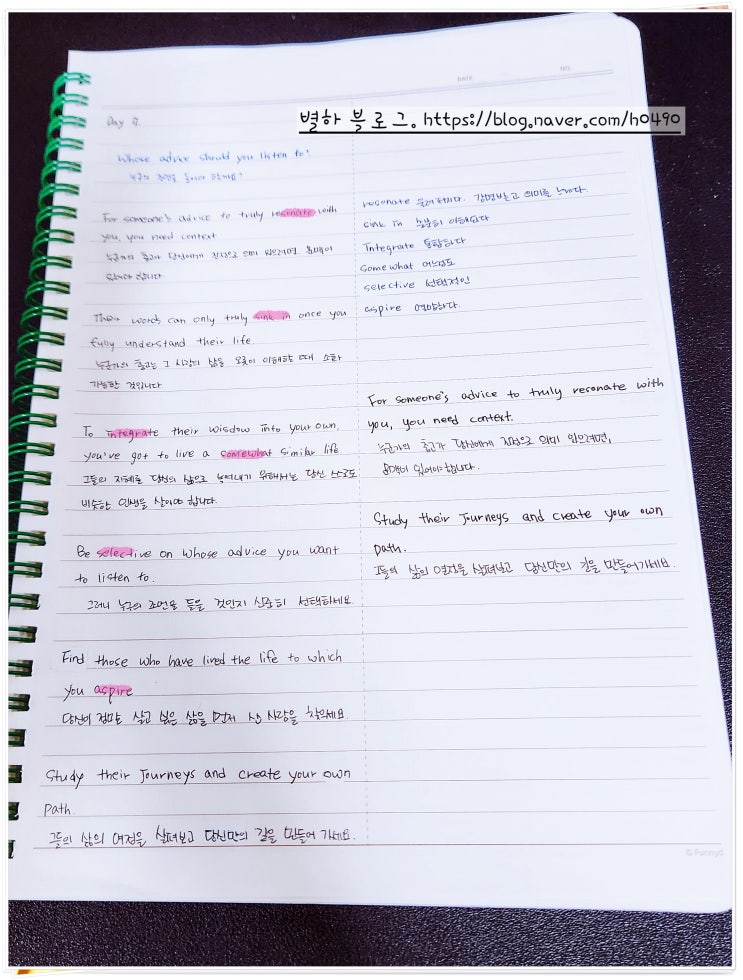 DATE
NO.
별하 블로그. https://blog.naver.com/h0490
Day 9.
Whose advice should you listen to?
누구의 조언을 들어야 할까요?
For someone's advice to truly resonate with
you, you need context
누군가의 충고가 당신에게 진정으로 의미 있으려면, 문맥이
있어야 합니다.
Their words can only truly sink in once you
fully understand their life.
누군가의 충고는 그 사람의 삶을 오롯이 이해할 때 소화
가능한 것입니다
To integrate their wisdow into your own,
you've got to live a somewhat similar life
그들의 지혜를 당신의 삶으로 녹여내기 위해서는 당신 스스로도
비슷한 인생을 살아야 합니다.
Be selective on whose advice you want
to listen to.
그러니 누구의 조언을 들을 것인지 신중히 선택하세요.
Find those who have lived the life to which
you aspire
당신이 정말 살고 싶은 삶을 먼저 산 사람을 찾으세요.
Study their Journeys and create your own
Path.
그들의 삶의 여정을 살펴보고 당신만의 길을 만들어 가세요.
resonate 울려퍼지다. 감명받고 의미를 느끼다.
sink in 충분히 이해되다
Integrate 통합하다
somewhat 어느정도
selective 선택적인
aspire 열망하다.
For someone's advice to truly resonate with
you, you need context.
누군가의 충고가 당신에게 진정으로 의미 있으려면,
문맥이 있어야 합니다.
Study their Journeys and create your own
path.
그들의 삶의 여정을 살펴보고 당신만의 길을 만들어가세요.
© Funnyd